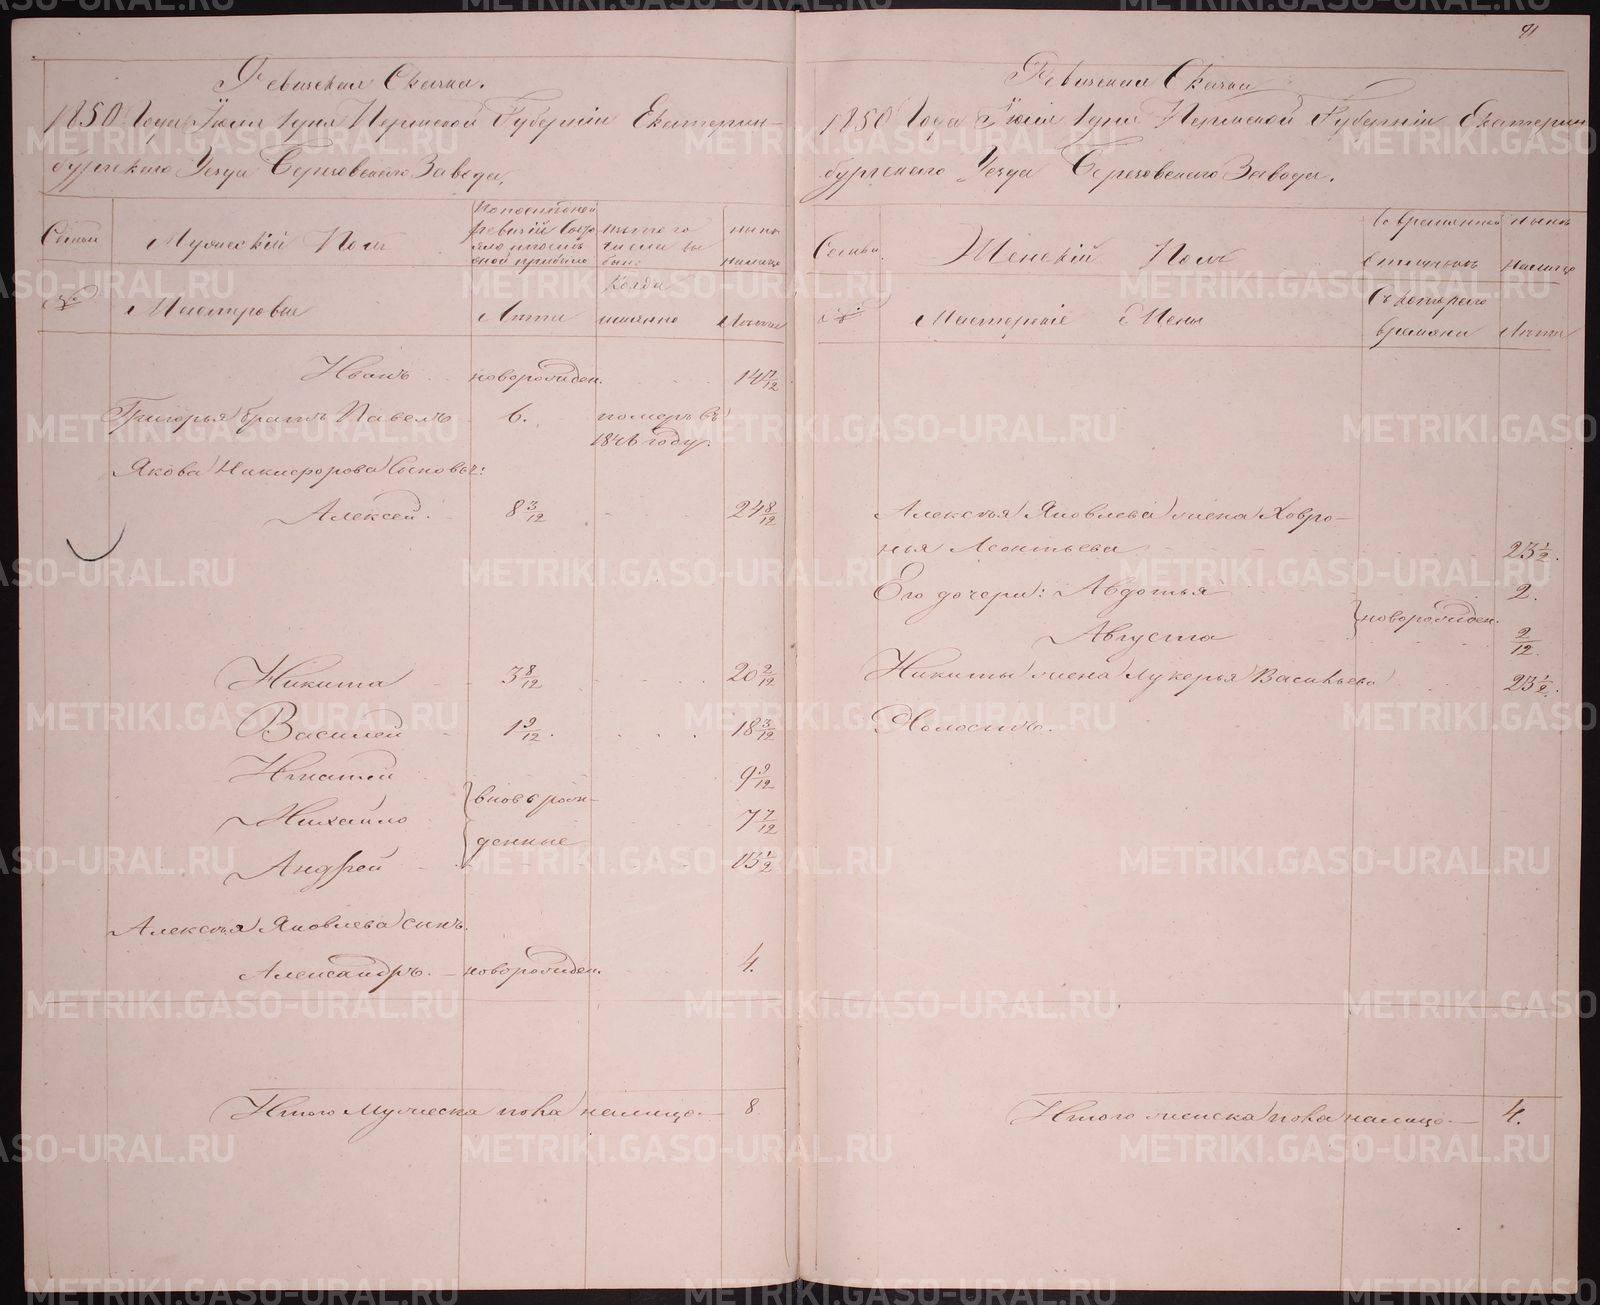 Ревизская Сказка.
1850 Года Июля 1 дня Пермской Губернiи Екатерин-
бургскаго Уезда Березовскаго Завода.
Семьи
Мужескiй Полъ
По последней
ревизiи состо
яло и после
оной прибыло
изъ того
числа вы
было
ныне
налицо
№
Мастеровые
Лета
Когда
именно
Лета
Иванъ новорожден. 14 7/12
Григорья братъ Павелъ 6. померъ въ
1846 году.
Якова Никифорова Сыновья:
Алексей. 8 3/12 24 8/12
Никита 3 8/12 20 2/12
Василей 1 9/12. 18 3/12
Игнатей 9 9/12
вновь рож-
Михайло 7 7/12
денные
Андрей 13 1/2
Алексея Яковлева сынъ.
Александръ. новорожден. 4.
Итого Мужеска пола налицо 8
91
Ревизская Сказка
1850 Года Июля 1 дня Пермской Губернiи Екатерин
бургскаго Уезда Березовскаго Завода.
Семьи
Женскiй Полъ
Во временной
отлучке
ныне
налицо
№
Мастерскiе Жены
Съ котораго
времяни
Лета
Алексея Яковлева жена Ховро-
нья Леонтьева 23 1/2.
Его дочери: Авдотья 2.
новорожден.
Августа 2/12.
Никиты жена Лукерья Васильева 23 1/2.
Холостъ.
Итого женска пола налицо 4.
METRIKI.GASO-URAL.RU